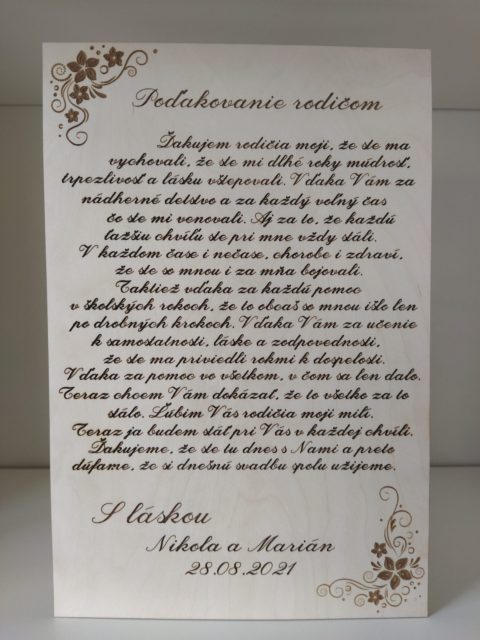 Poďakovanie rodičom
Ďakujem rodičia moji, že ste ma
vychovali, že ste mi dlhé roky múdrosť,
trpezlivosť a lásku vštepovali. Vďaka Vám za
nádherné detstvo a za každý voľný čas
čo ste mi venovali. Aj za to, že každú
ťažšiu chvíľu ste pri mne vždy stáli.
V každom čase i nečase, chorobe i zdraví,
že ste so mnou i za mňa bojovali.
Taktiež vďaka za každú pomoc
v školských rokoch, že to občaš so mnou išlo len
po drobných krokoch. Vďaka Vám za učenie
k samostatnosti, láske a zodpovednosti,
že ste ma priviedli rokmi k dospelosti.
Vďaka za pomoc vo všetkom, v čom sa len dalo.
Teraz chcem Vám dokázať, že to všetko za to
stálo. Ľúbim Vás rodičia moji milí.
Teraz ja budem stáť pri Vás v každej chvíli.
Ďakujeme, že ste tu dnes s Nami a preto
dúfame, že si dnešnú svadbu spolu užijeme.
S láskou
Nikola a Marián
28.08.2021